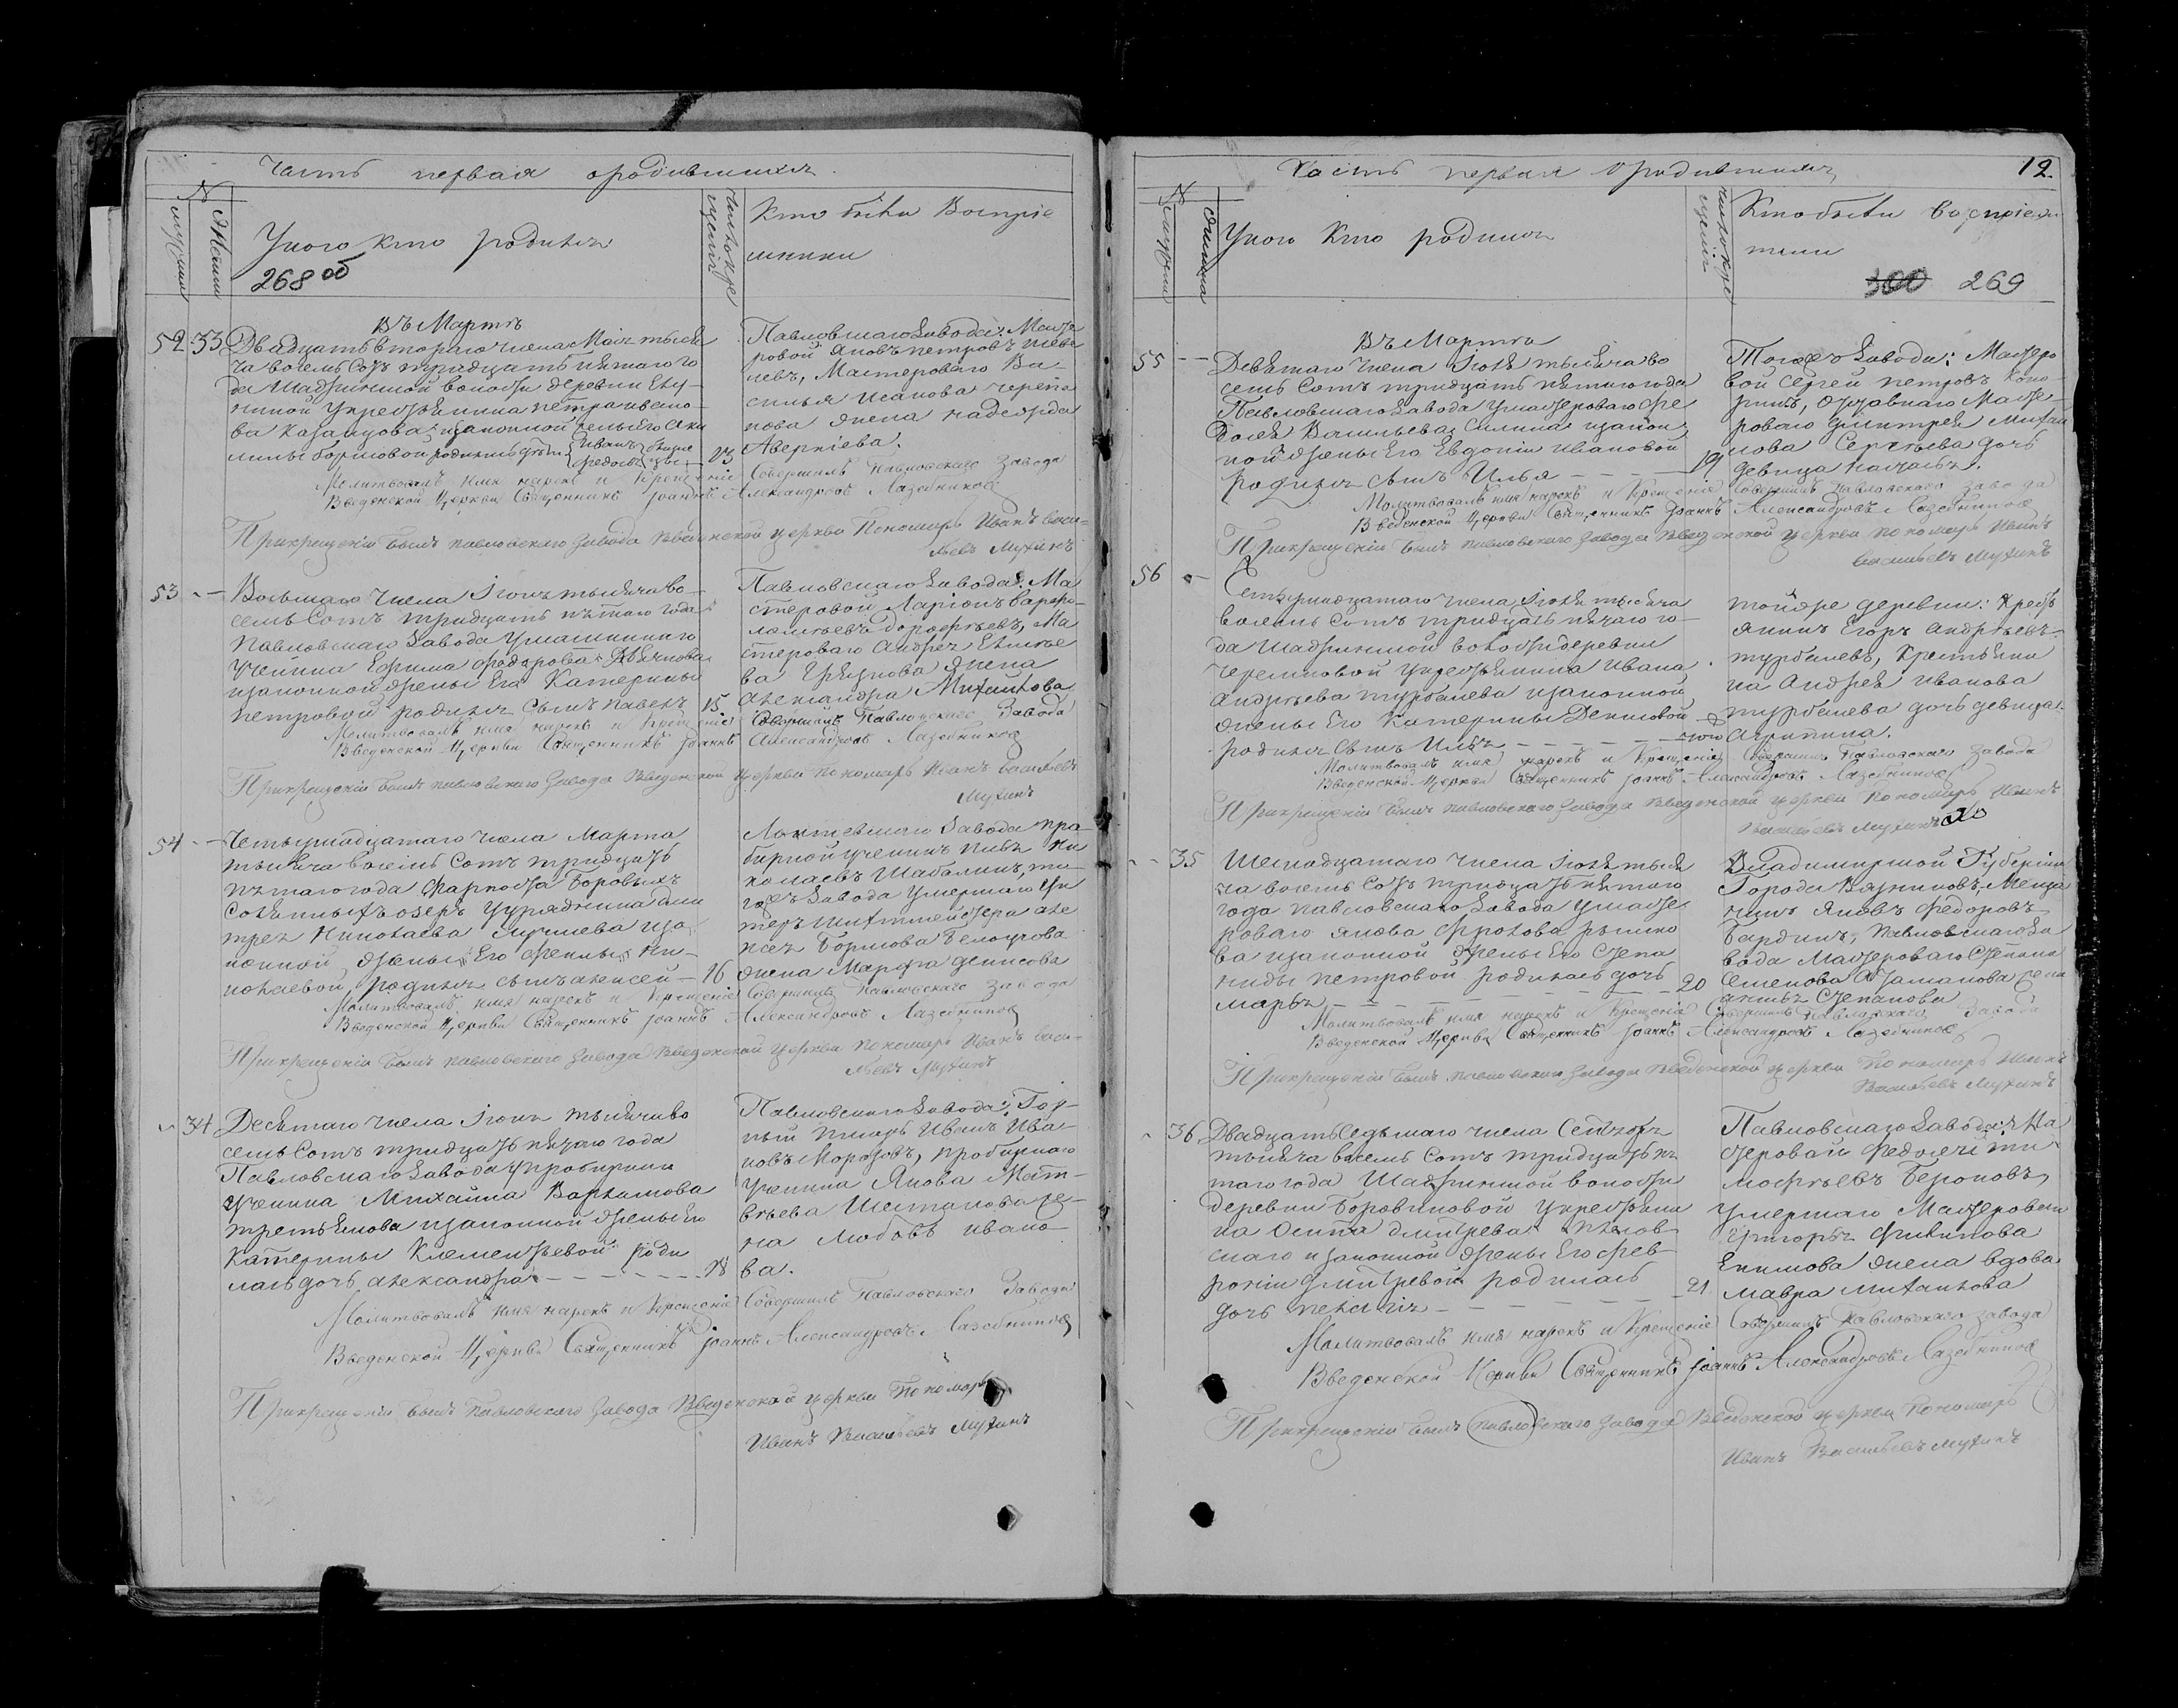 Часть первая ородившихся
№ Кто были Воспріе
мужеска
Женска
Укого кто родился
Число креще
щенія
мники
268 об
Въ Мартѣ
52 33 Двадцать втораго числа Маія тысе
ча восемь Сотъ тридцать пятаго го
да Шадринской волости деревни Елу-
ниной Укрестьянина петра ивано-
ва Казанцова изаконной жены его Аку
лины борисовой родились дѣти Иванъ Федосья близне цы 13
Павловскаго Завода: Масте
ровой Яковъ петровъ
левъ, Мастероваго Ва-
силья Исакова черепа
нова жена надежда
Аверкіева.
Молитвовалъ имя нарекъ и Крещеніе Совершилъ Павловскаго Завода
Введенской Церкви Священникъ Іоаннъ Александровъ Лазебников
Прикрещеніи былъ павловскаго Завода Введенской церкви Пономарь Иванъ васи-
льевъ Мухинъ
53 - Восьмаго числа Іюня тысячаво
семь Сотъ тридцать пятаго года
Павловскаго Завода Умашиннаго
Ученика Ефима Федорова
изаконной жены Его Катерины
петровой родился сынъ павелъ 15.
Павловскаго Завода: Ма
стеровой Ларіонъ варфо-
ломѣевъ дорофѣевъ, Ма
стероваго Андрея
ва Грязнова жена
александра Михайлова
Молитвовалъ имя нарекъ и Крещеніе Совершилъ Павловскаго Завода
Введенской Церкви Священникъ Іоаннъ Александровъ Лазебников
Прикрещеніи былъ павловскаго Завода Введенской церкви Пономарь Иванъ Васильевъ
Мухинъ
54 - Четырнадцатаго числа Марта
тысяча восемь Сотъ тридцать
пятаго года Форпоста Боровыхъ
Соляныхъ озеръ Урядника дми
трея Николаева иза
конной жены Его Ни-
колаевой, родился сынъ алексей - 16
Локтевскаго Завода про-
бирной ученикъ Ни
колаевъ Шабалинъ, то-
гожъ Завода Умершаго Ун
теръ Шихтмейстера але
ксея Борисова Белоусова
жена Марфа денисова
Молитвовалъ имя нарекъ и Крещеніе Совершилъ Павловскаго Завода
Введенской Церкви Священникъ Іоаннъ Александровъ Лазебников
Прикрещеніи былъ павловскаго Завода Введенской церкви Пономарь Иванъ васи-
льевъ Мухинъ
- 34 Десятаго числа Іюня тысячаво
семь Сотъ тридцать пятаго года
Павловскаго Завода Упробирнаго
Ученика Михайла Варламова
третьякова изаконной жены Его
Катерины Клементьевой роди
лась дочь александра - 18
Павловскаго Завода: Гор-
ный писарь Иванъ Ива-
новъ Морозовъ, пробирнаго
Ученика Якова Мат-
вѣева Шестакова же-
на Любовь ивано-
ва.
Молитвовалъ имя нарекъ и Крещеніе Совершилъ Павловскаго Завода
Введенской Церкви Священникъ Іоаннъ Александровъ Лазебников
Прикрещеніи былъ Павловскаго Завода Введенской церкви Пономарь
Иванъ Васильевъ Мухинъ
Часть первая ородившихся 12.
№
мужеска
женска
Укого Кто родился
число креще
щенія
Кто были воспріем
ники
300 269
Въ Мартѣ
55 - - Девятаго числа Іюля тысячаво
семь Сотъ тридцать пятаго года
Павловскаго Завода Умастероваго Фе
долея Васильева Силина изакон
ной жены Его Евдокіи Ивановой
родился сынъ Илья - - - 19
Тогожъ Завода: Мастеро
вой Сергей петровъ Коно-
ринъ, отставнаго Масте-
роваго дмитрея Михаи
лова Сергѣева дочь
девица
Молитвовалъ имя нарекъ и Крещеніе Совершилъ Павловскаго Завода
Введенской Церкви Священникъ Іоаннъ Александровъ Лазебников
Прикрещеніи былъ павловскаго Завода Введенской церкви пономарь Иванъ
Васильевъ Мухинъ
56 - Четырнадцатаго числа Іюля тысяча
восемь Сотъ тридцать пятаго го-
да Шадринской волости деревни
Черемновой Укрестьянина Ивана
Андрѣева турбалева изаконной
жены Его Катерины Денисовой
родился сынъ Илья - - -
тойже деревни: Кресть
янинъ Егоръ андрѣевъ
турбалевъ, Крестьяни
на Андрея иванова
турбалева дочь девица
Агрипина.
Молитвовалъ имя нарекъ и Крещеніе Совершилъ Павловскаго Завода
Введенской Церкви Священникъ Іоаннъ Александровъ Лазебников
Прикрещеніи былъ павловскаго Завода Введенской церкви Пономарь Иванъ
Васильевъ Мухинъ
- - 35 Шестнадцатаго числа Іюля тыся
ча восемь Сотъ тридцать пятаго
года павловскаго Завода Умасте
роваго якова Фролова
ва изаконной жены Его Степа
ниды петровой родилась дочь
марья - - - 20
Владимирской Губерніи
Города Вязниковъ: Меща
нинъ Яковъ Федоровъ
Бардинъ, павловскаго За
вода Мастероваго Степана
Семенова жена
Степанова
Молитвовалъ имя нарекъ и Крещеніе Совершилъ Павловскаго Завода
Введенской Церкви Священникъ Іоаннъ Александровъ Лазебников
Прикрещеніи былъ павловскаго Завода Введенской церкви Пономарь Иванъ
Васильевъ Мухинъ
- 36 Двадцать Седьмаго числа Сентября
тысяча восемь сотъ тридцать пя
таго года Шадринской волости
деревни Боровиковой Укрестьяни
на Осипа дмитрева
скаго изаконной жены Его Фев-
роніи дмитревой родилась
дочь пелагія - - - 21.
Павловскаго Завода: Ма
стеровой Федосей ти
мофѣевъ Бероновъ,
умершаго Мастероваго
Григорья Филипова
Екимова жена вдова
Мавра михайлова
Молитвовалъ имя нарекъ и Крещеніе Совершилъ Павловскаго Завода
Введенской Церкви Священникъ Іоаннъ Александровъ Лазебников
Прикрещеніи былъ павловскаго Завода Введенской церкви Пономарь
Иванъ Васильевъ Мухинъ